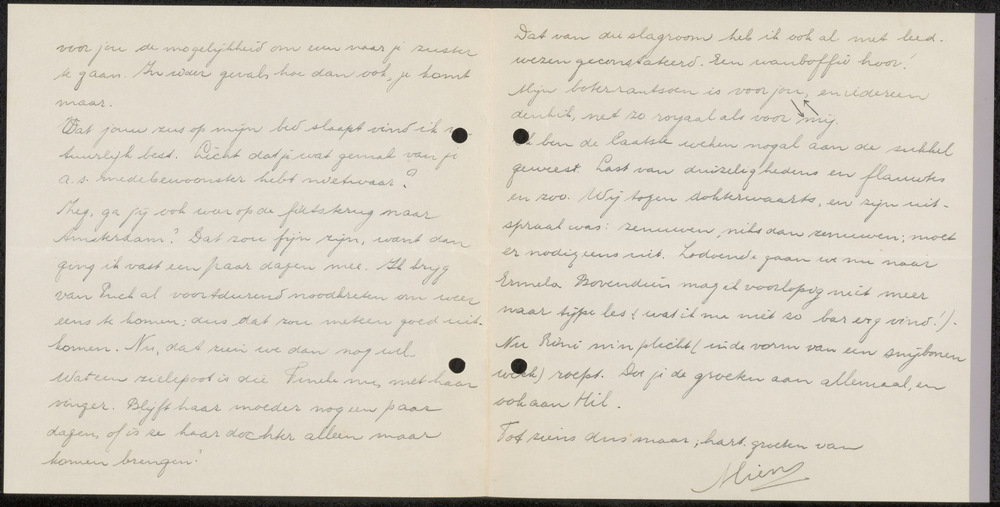 voor jou de mogelijkheid om even naar je zuster
te gaan. In ieder geval, hoe dan ook, je komt
maar.
Dat jouw zus op mijn bed slaapt vind ik na-
tuurlijk best. Licht dat je wat gemak van je
a.s. medebewoonster hebt nietwaar?
Zeg, ga jij ook weer op de fiets terug naar
Amsterdam? Dat zou fijn zijn, want dan
ging ik vast een paar dagen mee. Ik kryg
van Puck al voortdurend noodkreten om weer
eens te komen; dus dat zou meteen goed uit-
komen. Nu, dat zien we dan nog wel.
Wat een zielepoot is die nu, met haar
vinger. Blijft haar moeder nog een paar
dagen, of is ze haar dochter alleen maar
komen brengen?
Dat van die slagroom heb ik ook al met leed-
wezen geconstateerd. Een wanboffie hoor!
Mijn boterrantsoen is voor jou, en iedereen
denkik, net zo royaal als voor mij.
Ik ben de laatste weken nogal aan de sukkel
geweest. Last van duizelighedens en flauwtes
en zoo. Wij togen dokterwaarts, en zijn uit-
spraak was: zenuwen, niks dan zenuwen; moet
er nodig eens uit. Lodoende gaan we nu naar
Ermelo Bovendien mag ik voorlopig niet meer
naar type les (wat ik me niet zo bar erg vind!).
Nu Rini m'n plicht (in de vorm van een snijbonen
werk) roept. Doe je de groeten aan allemaal, en
ook aan Hil.
Tot ziens dus maar, hart. groeten van
Mien